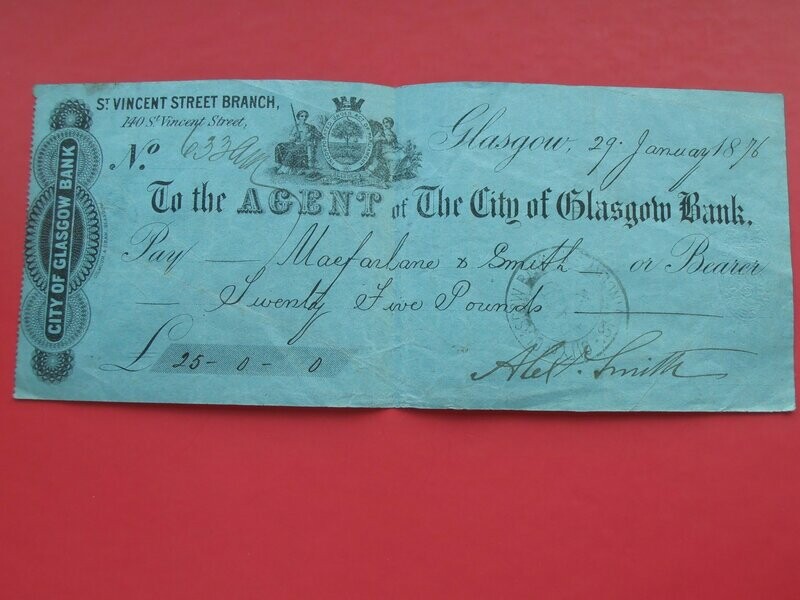 CITY OF GLASGOW BANK
ST VINCENT STREET BRANCH,
140 St Vincent Street,
No.
Glasgow, 29 January 1876
To the AGENT of The City of Glasgow Bank.
Pay — Macfarlane & Smith — or Bearer
— Twenty Five Pounds —
£ 25 - 0 - 0
Alexr. Smith